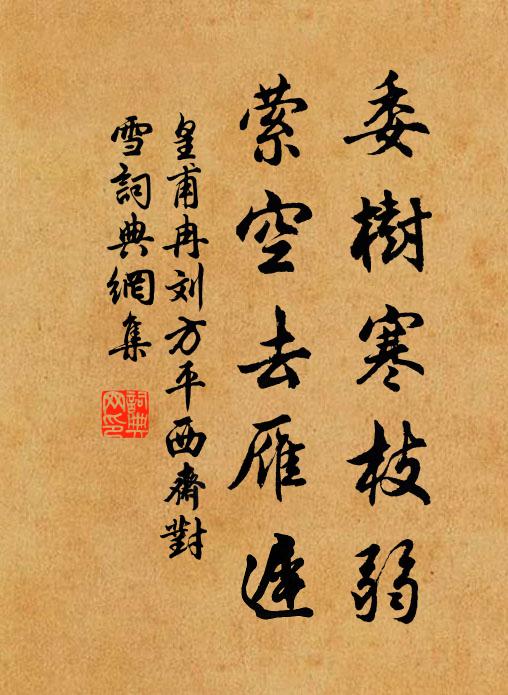 委樹寒枝弱
縈空去雁遲
皇甫冉刘方平西齋對
雪詞典網集
詞典
网印